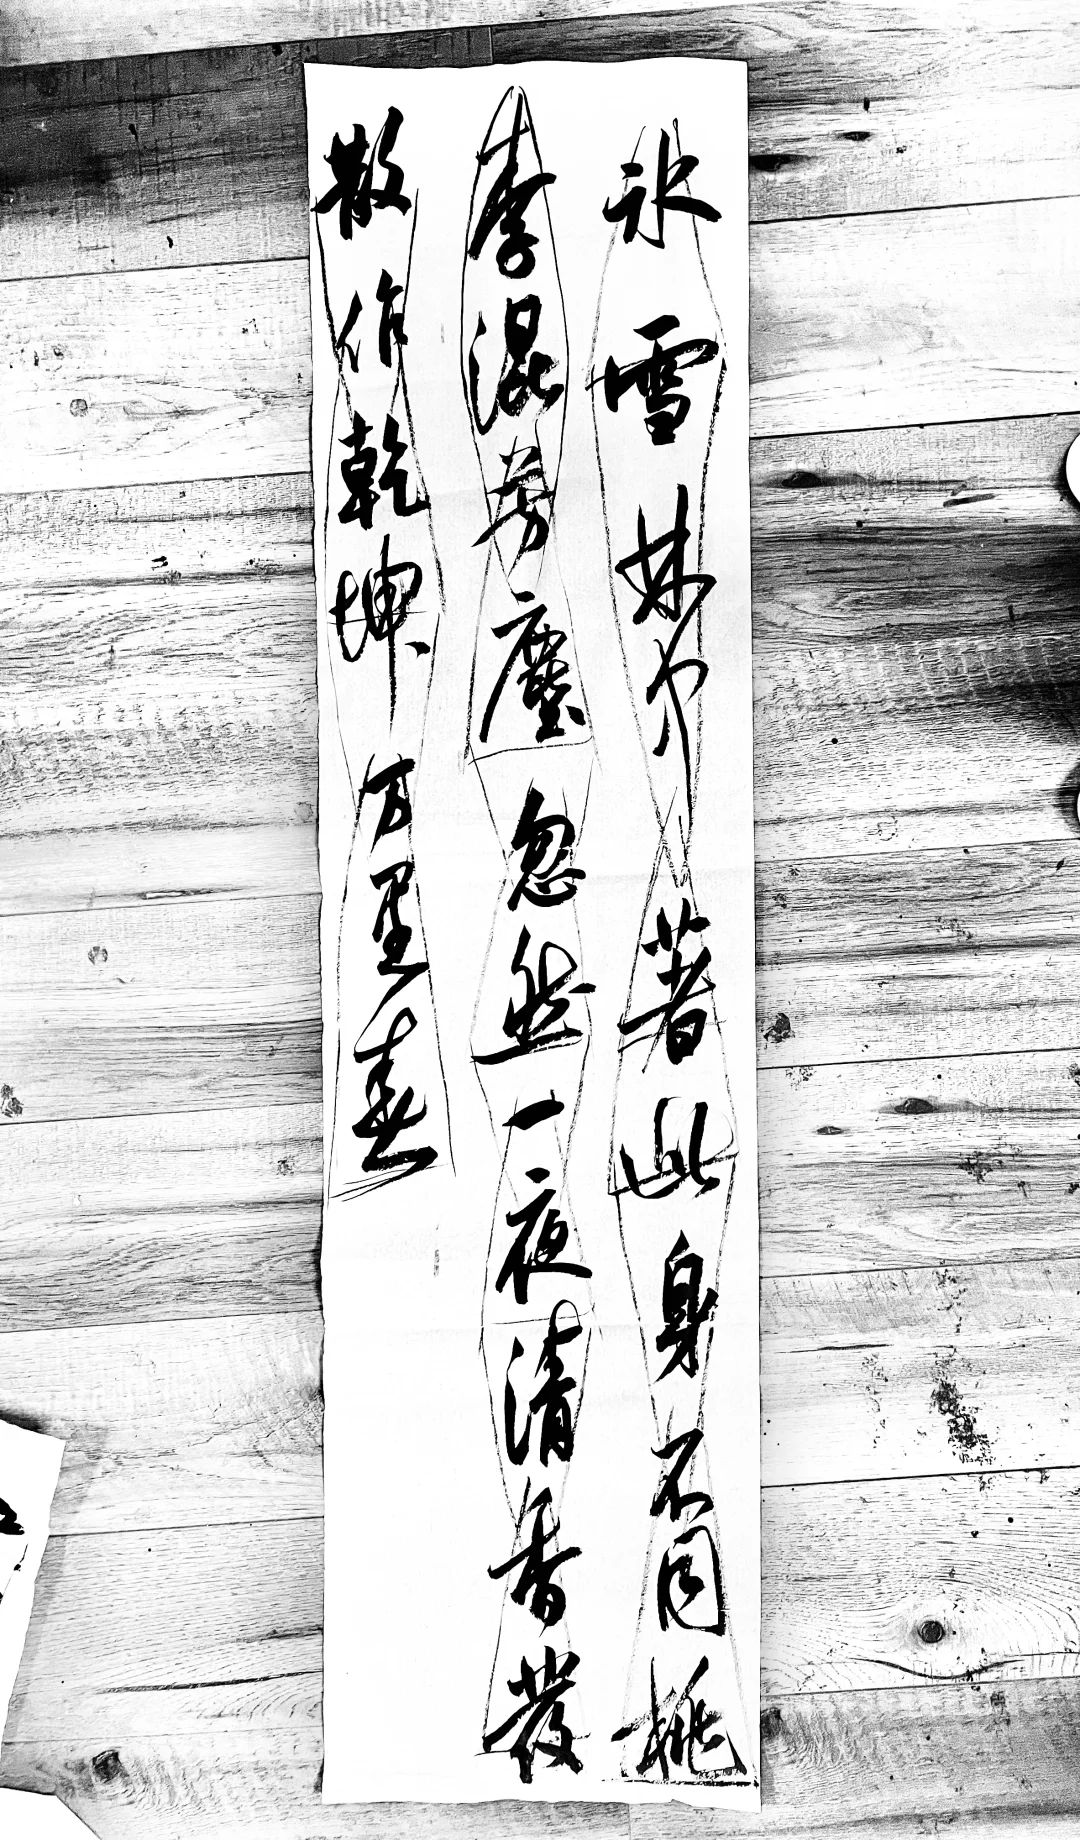 冰雪林中著此身不同桃
李混芳塵忽然一夜清香發
散作乾坤万里春